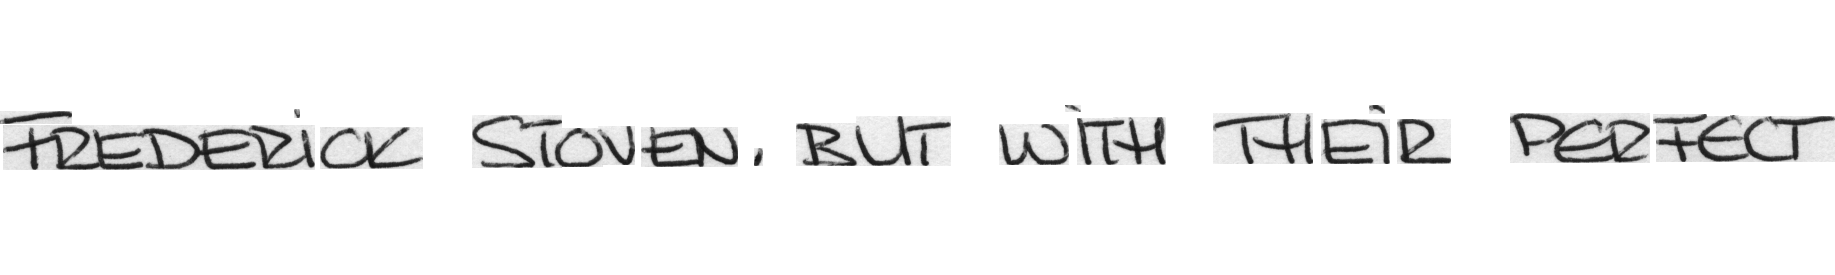 FREDERiCK STOVEN, BUT WiTH THEiR PERFECT